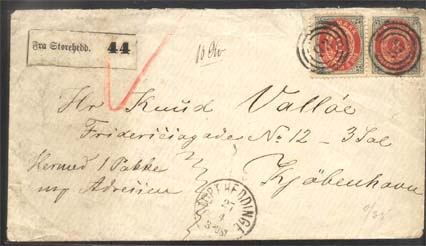 Fra Storehedd. 44
Hr Knud Valløe
Fridericiagade No. 12 - 3 Sal
Kjöbenhavn
Hermed 1 Pakke
mrk Adressen
STOREHEDDINGE
27
4